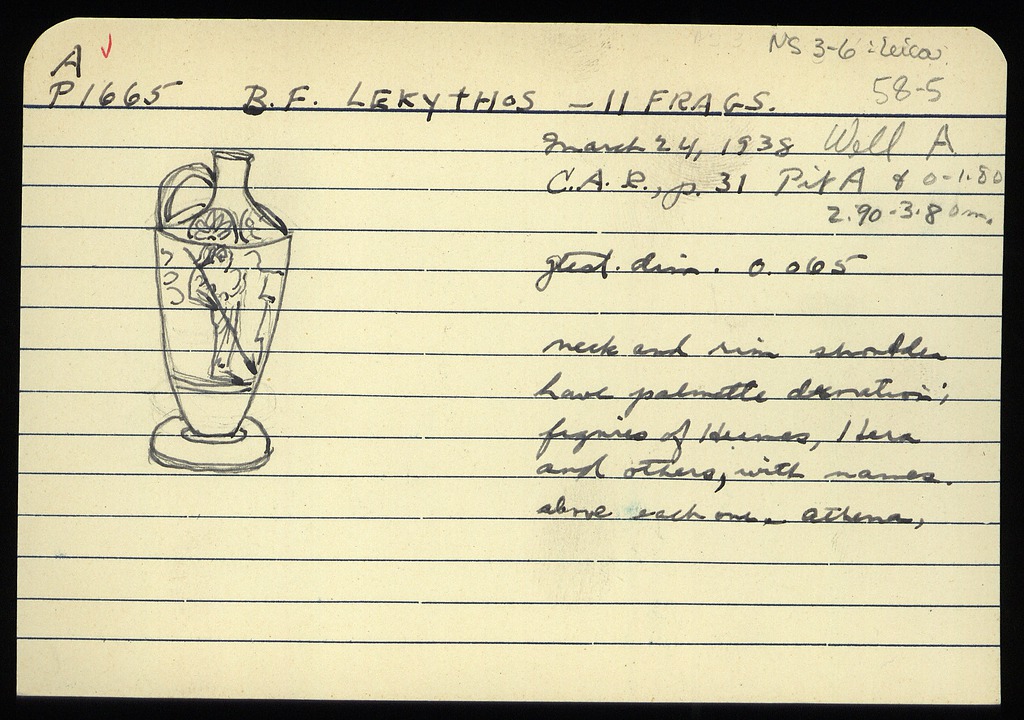 A
NS 3-6 Leica
58-5
P1665 B.F. LEKYTHOS - 11 FRAGS.
March 24, 1938 Well A
C.A.R., p. 31 Pit A & 0-1.80
2.90-3.80m.
gtest. dim. 0.065
neck and rim shoulder
have palmette decoration;
figures of Hermes, Hera
and others, with names.
above each one. Athena,